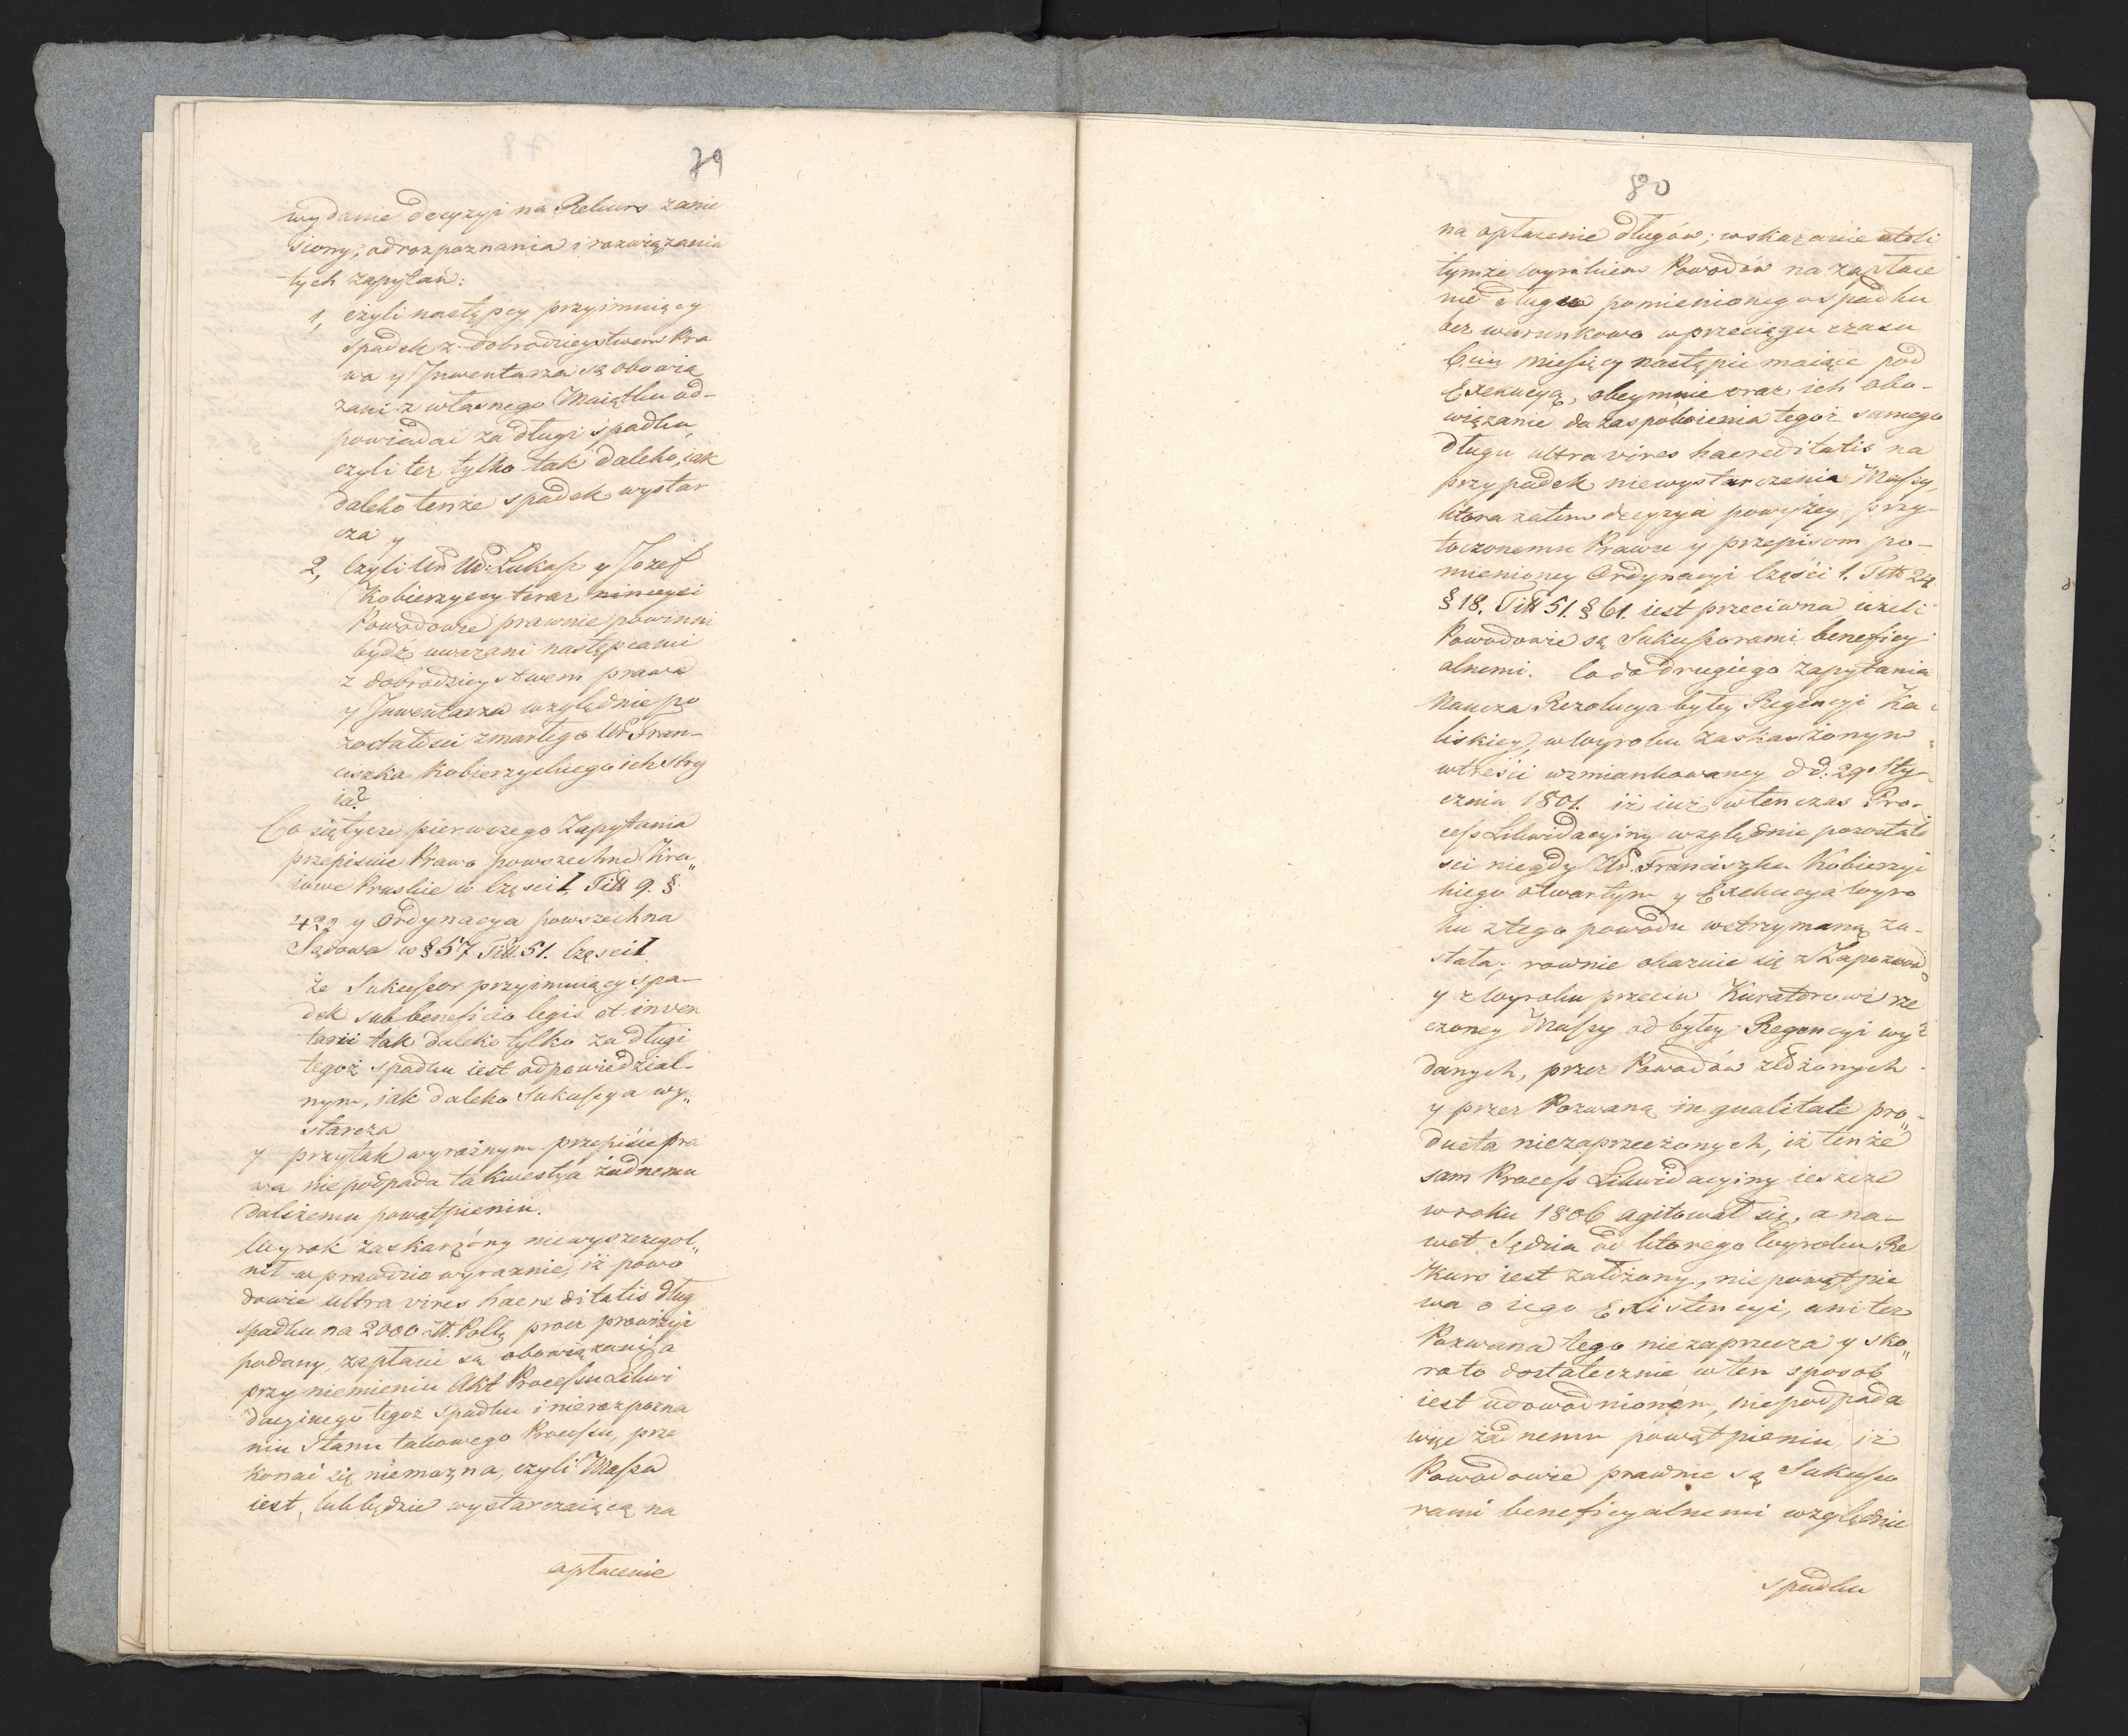 79
wydanie decyzyi na Rekurs zanie
siony, od rozpoznania i rozwiązania
tych zapytań:
1, czyli następcy przyimuiący
spadek z dobrodzieystwem Pra
wa y Inwentarza są obowią
zani z własnego Maiątku od-
powiadać za długi spadku,
czyli też tylko tak daleko, iak
daleko tenże spadek wystar
cza y
2, Czyli Ur Ur: Łukasz y Jozef
Kobierzyccy teraz ninieysi
Powodowie prawnie powinni
bydź uważani następcami
z dobrodzieystwem prawa
y Inwentarza względnie po
zostałości zmarłego Ur. Fran-
ciszka Kobierzyckiego ich Stry
ia?
Co się tycze pierwszego Zapytania
przepisuie Prawo powszechne Kra„
iowe Pruskie w Części I Titt 9. §.
422 y Ordynacya powszechna
Sądowa w § 57 Titt. 51. Części I
że Sukcessor przyimuiący spa-
dek sub beneficio legis et inven
tarii tak daleko tylko za długi
tegoż spadku iest odpowiedzial-
nym, iak daleko Sukcessya wy„
starcza
y przy tak wyraźnym przepisie pra
wa nie podpada ta kwestya żadnemu
dalszemu powątpieniu.
Wyrok zaskarżony niewyszczegol„
nił wprawdzie wyraznie, iż powo
dowie ultra vires haereditatis dług
spadku na 2000 Zł. Polk. procz prowizyi
podany, zapłacić są obowiązani, a
przy niemieniu Akt Processu Likwi
dacyinego tegoż spadku i nierozpozna
niu Stanu takowego Processu, prze
konać się niemożna, czyli Massa
iest, lub będzie wystarczaiącą na
opłacenie
80
na opłacenie długów; wskazanie atoli
tymże Wyrokiem Powodów na zapłace
nie długu pomienionego spadku
bez warunkowo w przeciągu czasu
6ciu miesięcy nastąpić maiące pod
Exekucyą, obeymuie oraz ich obo-
wiązanie do zaspokoienia tegoż samego
długu ultra vires haereditatis na
przypadek niewystarczenia Massy,
ktora zatem decyzya powyżey przy-
toczonemu Prawu y przepisom po-
mienioney Ordynacyi Części 1. Titt 24
§ 18. Titt 51. § 61. iest przeciwna ieżeli
Powodowie są Sukcessorami beneficy-
alnemi. Co do drugiego zapytania
naucza Rezolucya byłey Regencyi Ka-
liskiey, w Wyroku zaskarżonym
w treści wzmiankowaney d d: 29 Sty-
cznia 1801. iż iuż wtenczas Pro-
cess Likwidacyiny względnie pozostało
sci niegdy Ur. Franciszka Kobierzyc
kiego otwartym y Exekucya Wyro
ku z tego powodu wstrzymaną zo-
stała; rownie okazuie się z Zapozwów
y z Wyroku przeciw Kuratorowi rze
czoney Massy od byłey Regencyi wy-
danych, przez Powodów złożonych
y przez Pozwaną in qualitate pro„
ducta niezaprzeczonych, iż tenże
sam Process Likwidacyiny ieszcze
w roku 1806 agitował się, a na-
wet Sędzia od ktorego Wyroku Re
kurs iest założony, nie powątpie
wa o iego Existencyi, ani też
Pozwana tego nie zaprzecza y sko„
ro to dostatecznie w ten sposob
iest udowodnionem, nie podpada
więc żadnemu powątpieniu, iż
Powodowie prawnie są Sukcesso
rami beneficyalnemi względnie
spadku